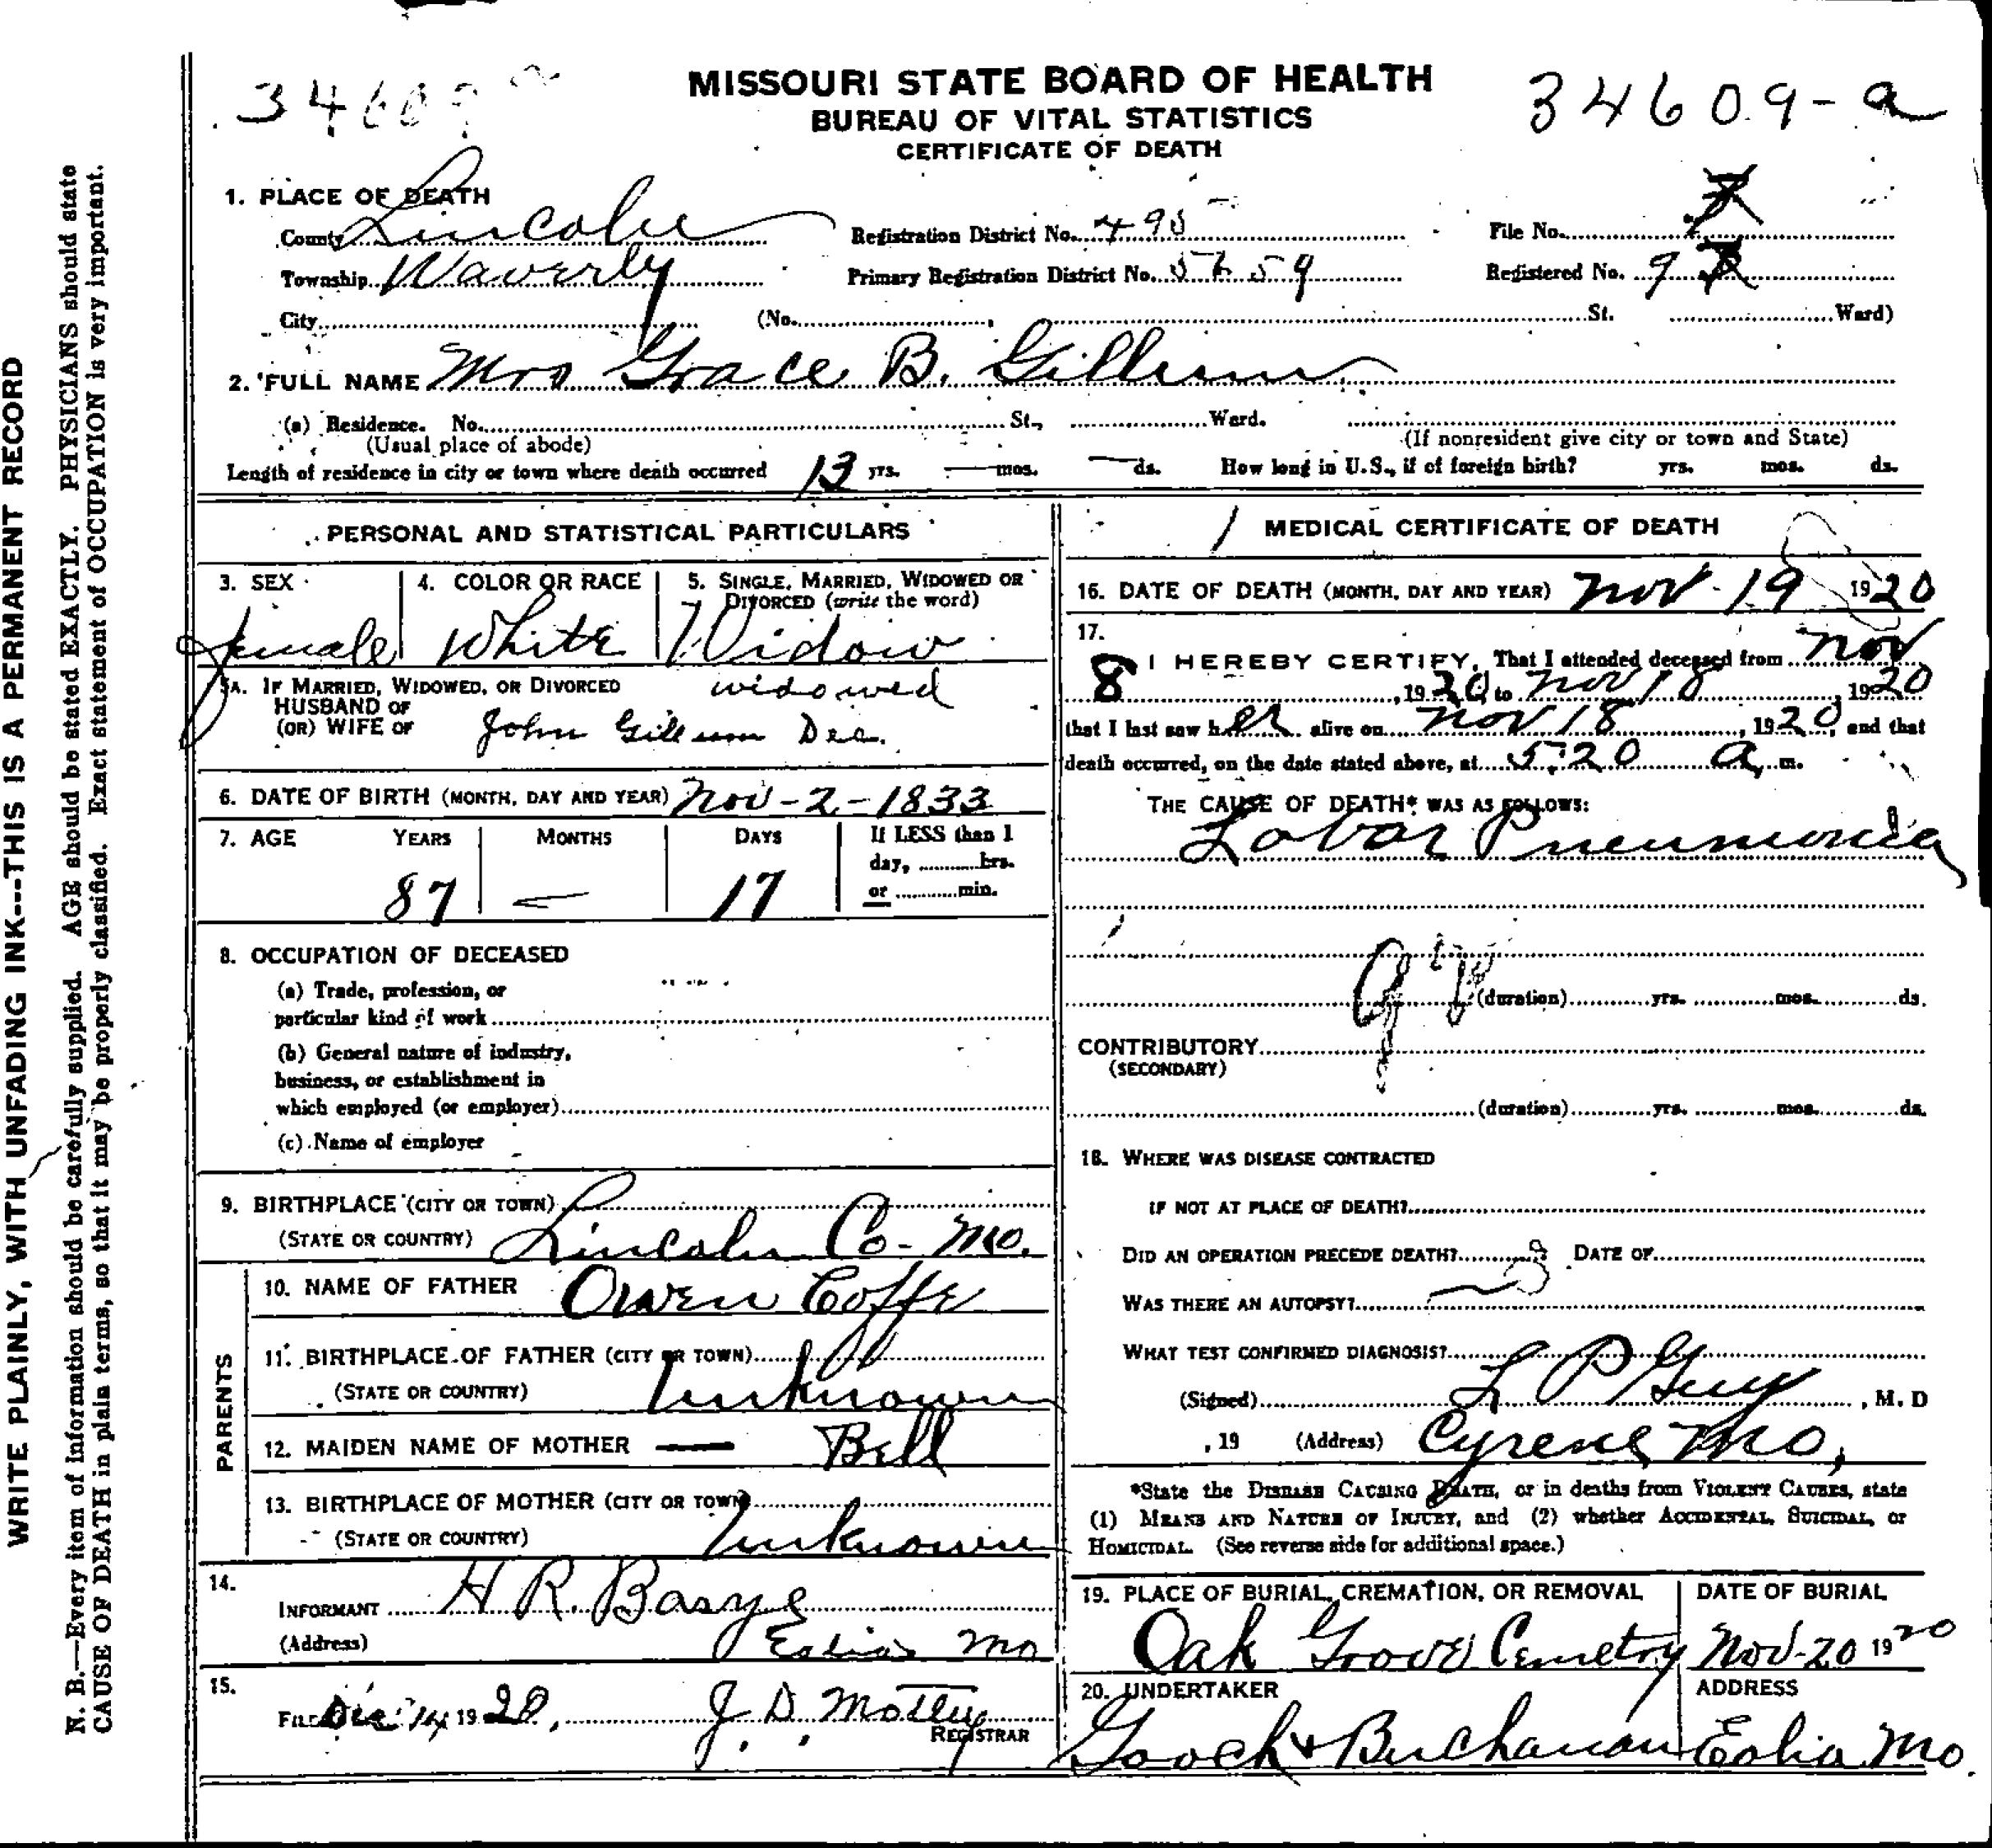 34609 a
MISSOURI STATE BOARD OF HEALTH
BUREAU OF VITAL STATISTICS
CERTIFICATE OF DEATH
34609-a
WRITE PLAINLY, WITH UNFADING INK---THIS IS A PERMANENT RECORD
N. B.—Every item of information should be carefully supplied. AGE should be stated EXACTLY. PHYSICIANS should state
CAUSE OF DEATH in plain terms, so that it may be properly classified. Exact statement of OCCUPATION is very important.
1. PLACE OF DEATH
County Lincoln Registration District No. 495 File No.
Township Waverly Primary Registration District No. 5659 Registered No. 9
City (No. , St. Ward)
2. FULL NAME Mrs Grace B. Gillum
(a) Residence. No. St., Ward.
(Usual place of abode) (If nonresident give city or town and State)
Length of residence in city or town where death occurred 13 yrs. — mos. — ds. How long in U.S., if of foreign birth? yrs. mos. ds.
PERSONAL AND STATISTICAL PARTICULARS
3. SEX 4. COLOR OR RACE 5. SINGLE, MARRIED, WIDOWED OR
DIVORCED (write the word)
female White Widow
5A. IF MARRIED, WIDOWED, OR DIVORCED widowed
HUSBAND OF
(OR) WIFE OF John Gillum Dec.
6. DATE OF BIRTH (MONTH, DAY AND YEAR) Nov-2-1833
7. AGE YEARS MONTHS DAYS If LESS than 1
day, hrs.
87 — 17 or min.
8. OCCUPATION OF DECEASED
(a) Trade, profession, or
particular kind of work
(b) General nature of industry,
business, or establishment in
which employed (or employer)
(c) Name of employer
9. BIRTHPLACE (CITY OR TOWN)
(STATE OR COUNTRY) Lincoln Co- Mo.
PARENTS
10. NAME OF FATHER Owen Coffe
11. BIRTHPLACE OF FATHER (CITY OR TOWN)
(STATE OR COUNTRY) Unknown
12. MAIDEN NAME OF MOTHER — Bell
13. BIRTHPLACE OF MOTHER (CITY OR TOWN)
(STATE OR COUNTRY) Unknown
14.
INFORMANT H R. Basye
(Address) Eolia Mo
15.
FILED Dec 14, 1920, J. D. Motley
REGISTRAR
MEDICAL CERTIFICATE OF DEATH
16. DATE OF DEATH (MONTH, DAY AND YEAR) Nov-19 1920
17.
I HEREBY CERTIFY, That I attended deceased from Nov
8, 1920, to Nov 18, 1920
that I last saw her alive on Nov 18, 1920, and that
death occurred, on the date stated above, at 5:20 a, m.
THE CAUSE OF DEATH* WAS AS FOLLOWS:
Lobar Pneumonia
(duration) yrs. mos. ds.
CONTRIBUTORY
(SECONDARY)
(duration) yrs. mos. ds.
18. WHERE WAS DISEASE CONTRACTED
IF NOT AT PLACE OF DEATH?
DID AN OPERATION PRECEDE DEATH? DATE OF
WAS THERE AN AUTOPSY?
WHAT TEST CONFIRMED DIAGNOSIS?
(Signed) L P Guy, M. D
, 19 (Address) Cyrene, Mo,
*State the DISEASE CAUSING DEATH, or in deaths from VIOLENT CAUSES, state
(1) MEANS AND NATURE OF INJURY, and (2) whether ACCIDENTAL, SUICIDAL, or
HOMICIDAL. (See reverse side for additional space.)
19. PLACE OF BURIAL, CREMATION, OR REMOVAL DATE OF BURIAL
Oak Grove Cemetry Nov-20 1920
20. UNDERTAKER ADDRESS
Gooch & Buchanan Eolia Mo.